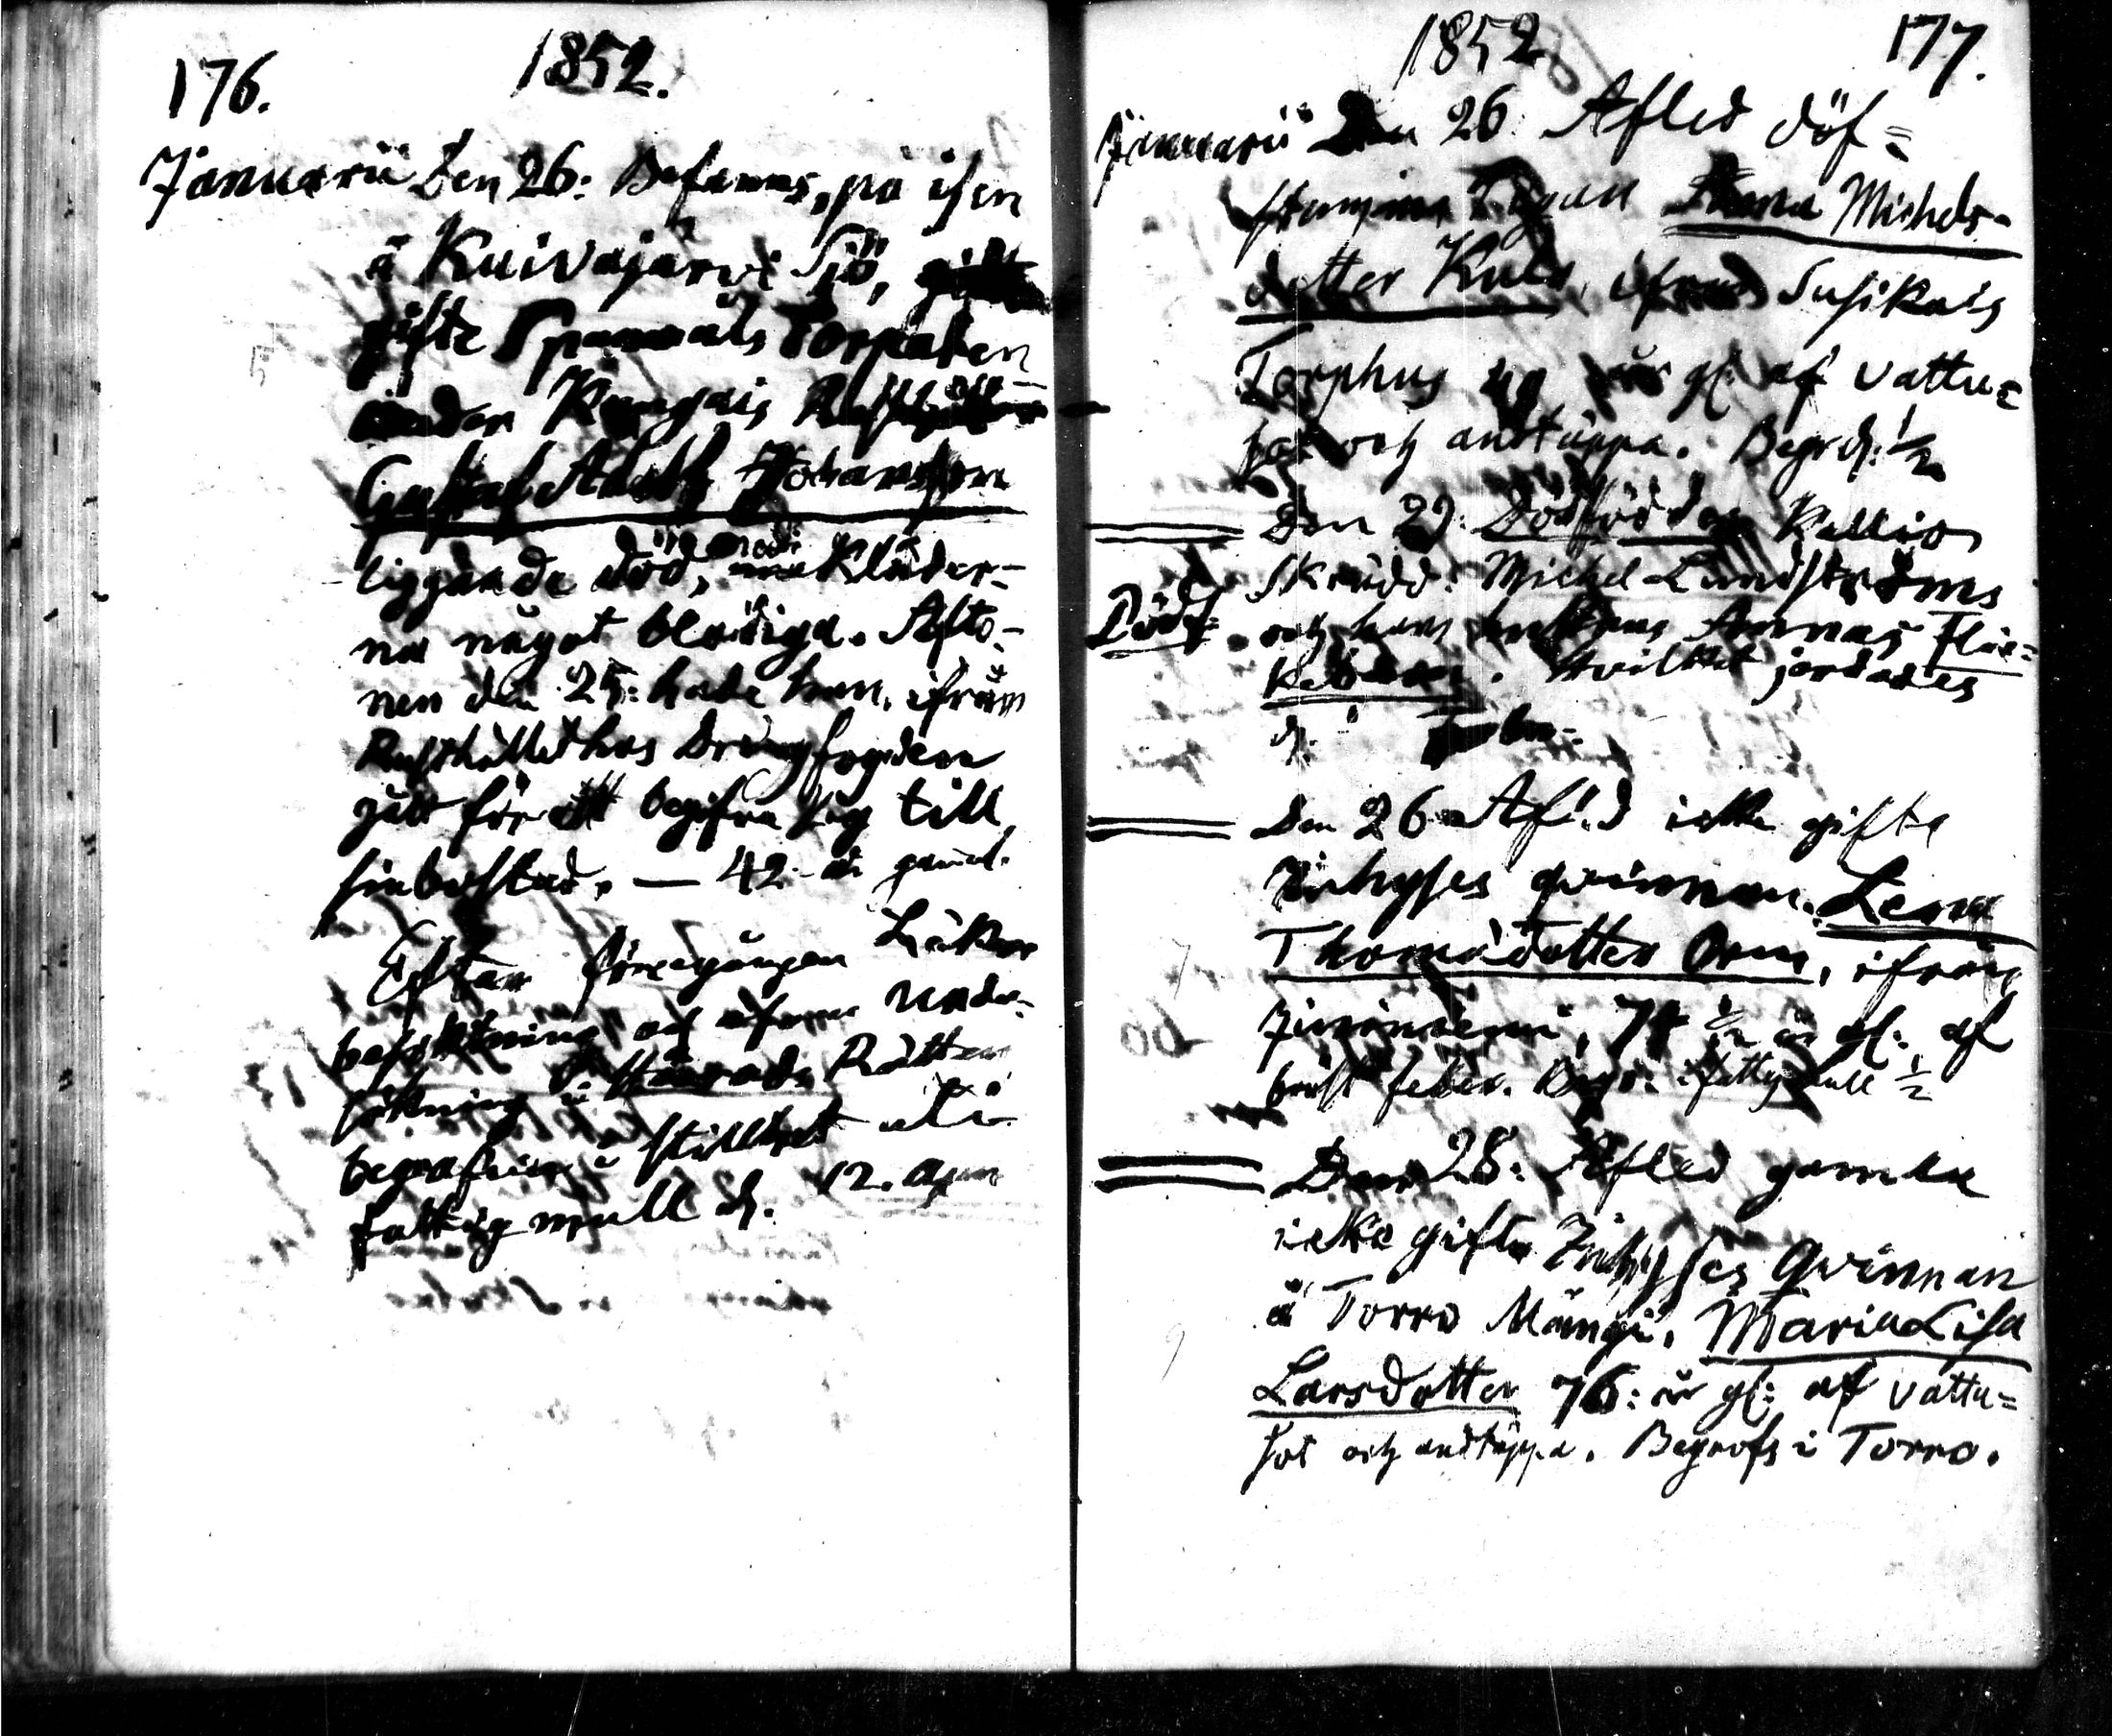 176.
1852.
Januarii Den 26: Befanns, på isen
å Kuivajärvi Sjö,
gifte Spannåls Torparen
under Kangais
Gustaf Adolf Johansson
liggande död, med Kläder-
na något blodiga. Afto-
nen den 25: hade han, ifrån
Rusthållet hos Drängfogden
gått för att begifva sig till
sin bostad. — 42 år gammal.
Efter föregången Läkar
besiktning och Under-
sökning i Härads Rätten
begrafven i stillhet uti
fattig mull d. 12. Apr
1852
177.
Januarii Den 26: Afled döf-
stumma Pigan Michels-
dotter ifrån Susikais
Torphus år gl: af vattu-
sot och andtäppa. Begr d: 1/2
Den 29: Dödföddes Kallio
Skrädd: Michel Lundströms
Dödf. och hans hustrus Annas Flic-
kebarn. Hvilket jordades
d.
Den 26 Afled icke gifte
Inhyses qvinnan. Lena
Thomädotter Orm, ifrån
1/2 år gl: af
bröst feber. Begr: i fattig mull 1/2
Den 28: Afled gamla
icke gifta Inhyses Qvinnan
å Torro Mängi, Maria Lisa
Larsdotter 76: år gl: af vattu-
sot och andtäppa. Begrofs i Torro.